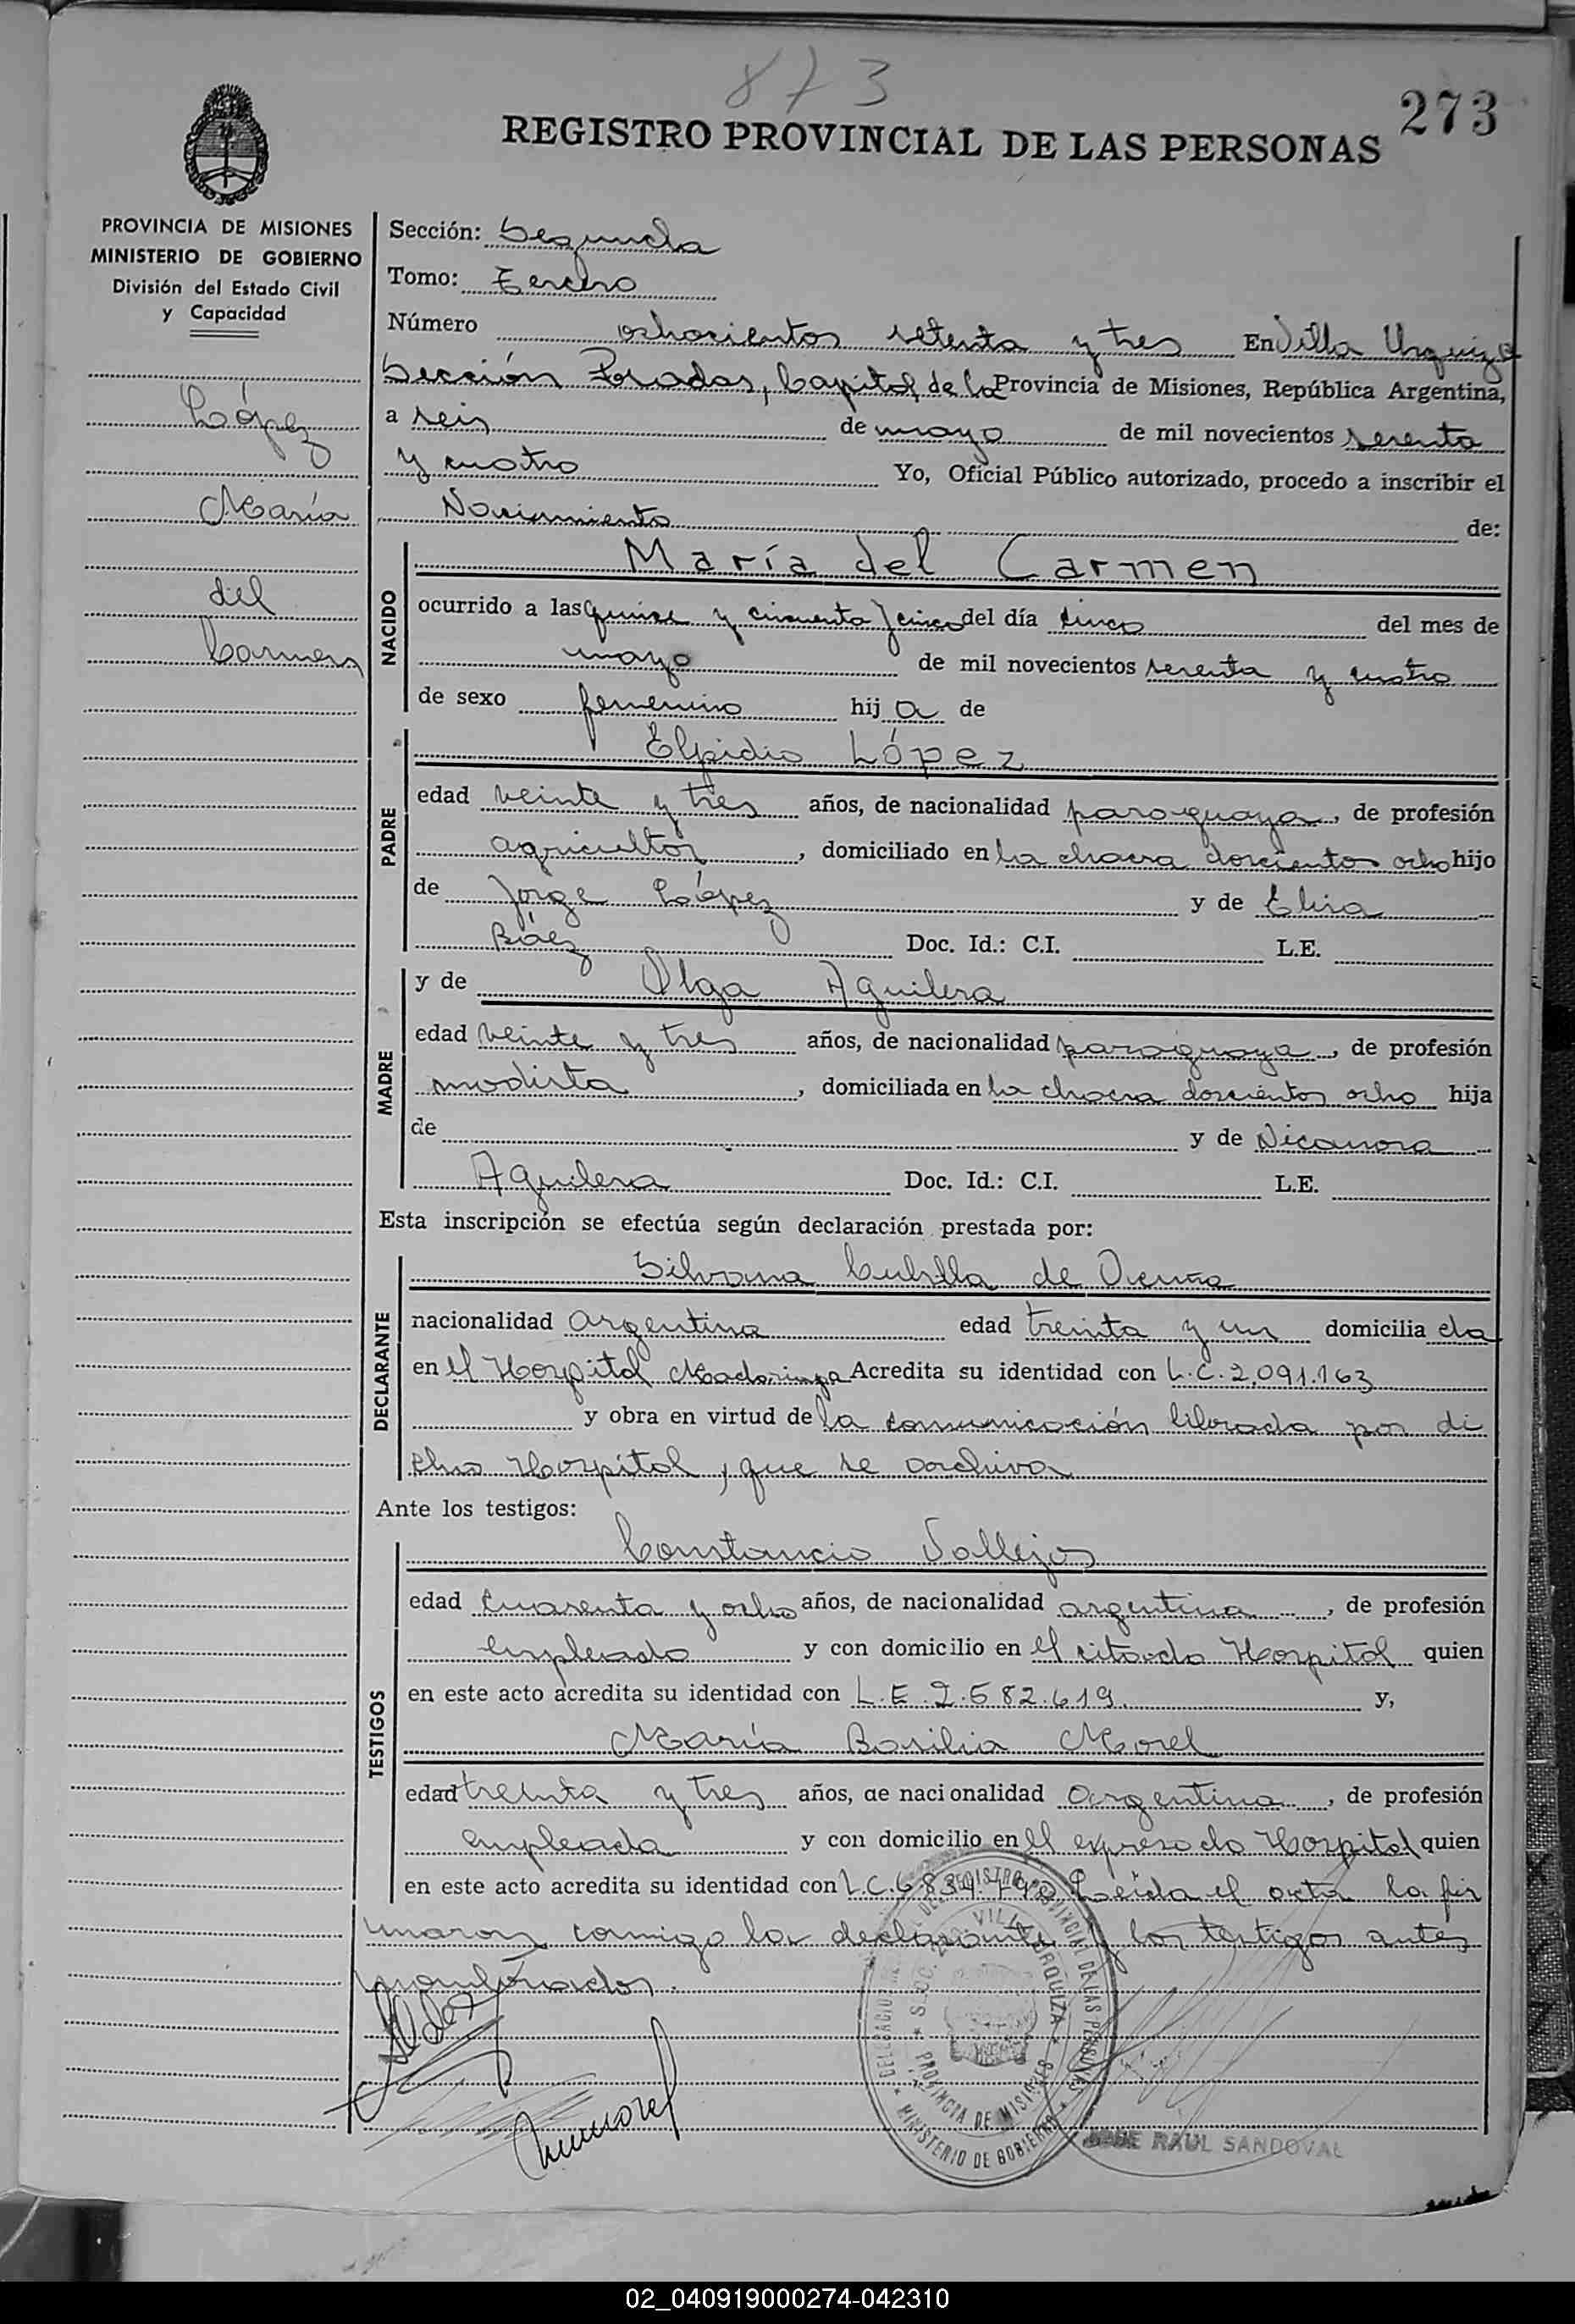 873
273
REGISTRO PROVINCIAL DE LAS PERSONAS
PROVINCIA DE MISIONES
MINISTERIO DE GOBIERNO
División del Estado Civil
y Capacidad
López
María
del
Carmen
Sección: Segunda
Tomo: Tercero
Número ochocientos setenta y tres En Villa Urquiza
Sección Posadas, Capital de la Provincia de Misiones, República Argentina,
a seis de mayo de mil novecientos setenta
y cuatro Yo, Oficial Público autorizado, procedo a inscribir el
Nacimiento de:
NACIDO
María del Carmen
ocurrido a las quince y cincuenta y cinco del día cinco del mes de
mayo de mil novecientos setenta y cuatro
de sexo femenino hij a de
PADRE
Elpidio López
edad veinte y tres años, de nacionalidad paraguaya, de profesión
agricultor, domiciliado en la chacra doscientos ocho hijo
de Jorge López y de Elisa
Báez Doc. Id.: C.I. L.E.
MADRE
y de Olga Aguilera
edad veinte y tres años, de nacionalidad paraguaya, de profesión
modista, domiciliada en la chacra doscientos ocho hija
de y de Nicanora
Aguilera Doc. Id.: C.I. L.E.
Esta inscripción se efectúa según declaración prestada por:
DECLARANTE
Silvana Cubilla de
nacionalidad argentina edad treinta y un domicilia da
en el Hospital Madariaga Acredita su identidad con L.C.2.091.163
y obra en virtud de la comunicación librada por di
cho Hospital, que se archiva
Ante los testigos:
TESTIGOS
Constancio Vallejos
edad cuarenta y ocho años, de nacionalidad argentina, de profesión
empleado y con domicilio en el citado Hospital quien
en este acto acredita su identidad con L.E. 2.582.619. y,
María Basilia Morel
edad treinta y tres años, de nacionalidad argentina, de profesión
empleada y con domicilio en el expresado Hospital quien
en este acto acredita su identidad con L.C. Leída el acta la fir
maron conmigo la declarante y los testigos antes
mencionados.
DELEGACION DEL REGISTRO PROVINCIAL DE LAS PERSONAS
SECC. 2da. VILLA URQUIZA
PROVINCIA DE MISIONES
MINISTERIO DE GOBIERNO
mmorel
JOSE RAUL SANDOVAL
02_040919000274-042310